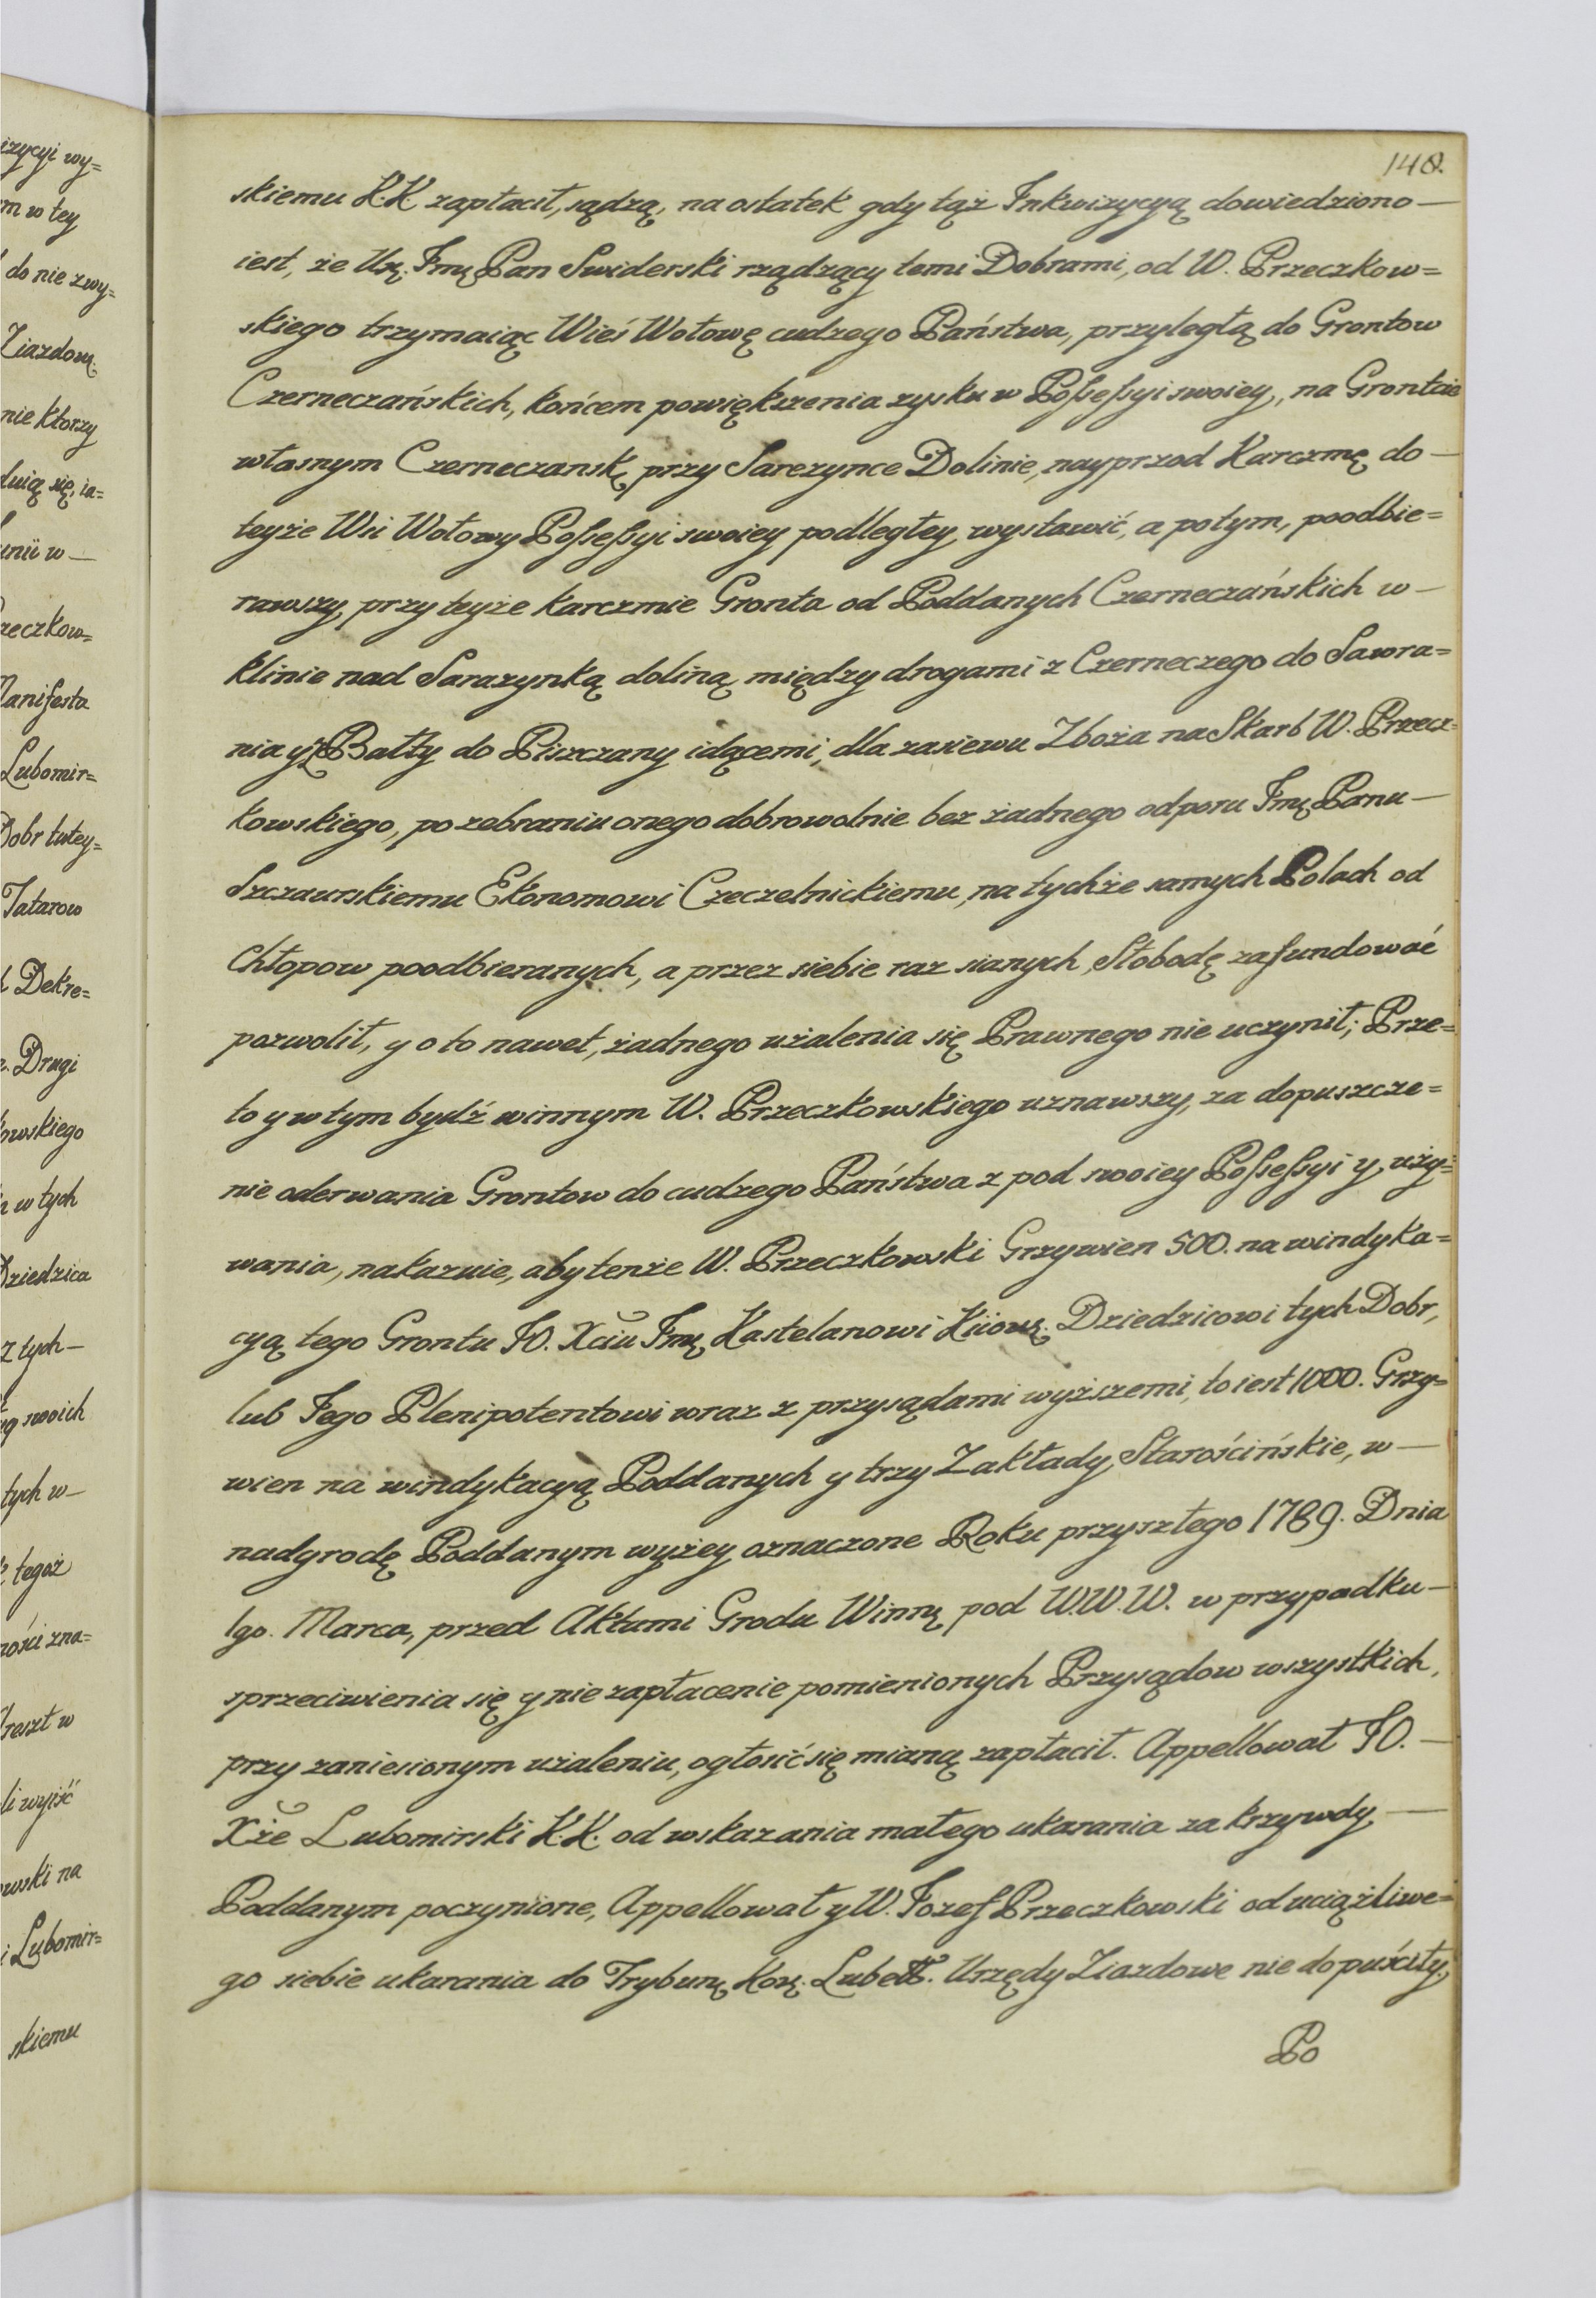 148.
skiemu K.K. zapłacił, sądzą, na ostatek gdy tąż Inkwizycyą dowiedziono —
iest, że Urę. Jmę Pan Swiderski rządzący temi Dobrami, od W. Przeczkow=
skiego trzymaiąc Wieś Wołowę cudzego Państwa, przyległą do Grontow
Czerneczańskich, końcem powiększenia zysku w Possessyi swoiey, na Grontcie
własnym Czerneczańsk. przy Sarezynce Dolinie, nayprzod Karczmę do —
teyże Wsi Wołowy Possessyi swoiey podległey wystawić, a potym, poodbie=
rawszy przy teyże karczmie Gronta od Poddanych Czerneczańskich w —
klinie nad Sarazynką doliną między drogami z Czerneczego do Sawra=
nia y z Bałty do Piszczany idącemi, dla zasiewu Zboża na Skarb W. Przecz=
kowskiego, po zebraniu onego dobrowolnie bez żadnego odporu Jmę Panu —
Szczaurskiemu Ekonomowi Czeczelnickiemu, na tychże samych Polach od
Chłopow poodbieranych, a przez siebie raz sianych, Słobodę zafundować
pozwolił, y o to nawet, żadnego użalenia się Prawnego nie uczynił; Prze=
to y w tym bydź winnym W. Przeczkowskiego uznawszy, za dopuszcze=
nie oderwania Grontow do cudzego Państwa z pod swoiey Possessyi y uży=
wania, nakazuie, aby tenże W. Przeczkowski Grzywien 500. na windyka=
cyą tego Grontu JO. Xciu Jmę Kastelanowi Kiiowę. Dziedzicowi tych Dobr,
lub Jego Plenipotentowi wraz z przysądami wyższemi, to iest 1000. Grzy=
wien na windykacyą Poddanych y trzy Zakłady Starościńskie, w —
nadgrodę Poddanym wyżey oznaczone Roku przyszłego 1789. Dnia
1go. Marca, przed Aktami Grodu Winnę pod W.W.W. w przypadku —
sprzeciwienia się y nie zapłacenie pomienionych Przysądow wszystkich,
przy zaniesionym użaleniu, ogłosić się mianą zapłacił. Appellował JO. —
Xże Lubomirski K.K. od wskazania małego ukarania za krzywdy —
Poddanym poczynione, Appellował y W. Jozef Przeczkowski od uciążliwe=
go siebie ukarania do Trybunę Korę. Lubelt. Urzędy Ziazdowe nie dopuściły,
Po